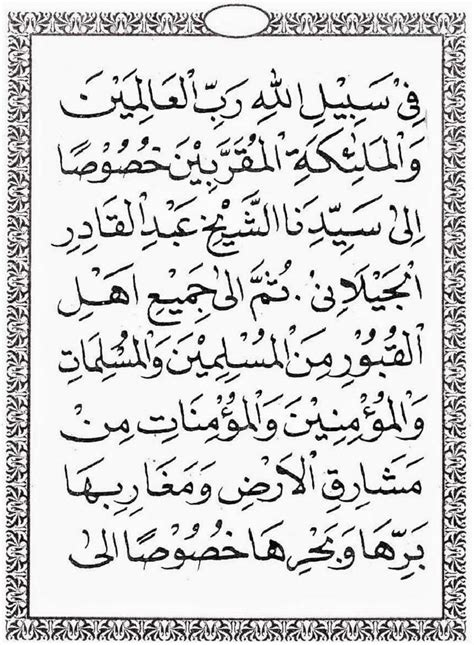 فِيْ سَبِيْلِ اللهِ رَبِّ الْعَالَمِيْنَ
وَالْمَلَئِكَةِ الْمُقَرَّبِيْنَ خُصُوْصًا
اِلَى سَيِّدِنَا الشَّيْخِ عَبْدِ الْقَادِرِ
الْجَيْلَانِى . ثُمَّ اِلَى جَمِيْعِ اَهْلِ
الْقُبُوْرِ مِنَ الْمُسْلِمِيْنَ وَالْمُسْلِمَاتِ
وَالْمُؤْمِنِيْنَ وَالْمُؤْمِنَاتِ مِنْ
مَشَارِقِ الْاَرْضِ وَمَغَارِبِهَا
بَرِّهَا وَبَحْرِهَا خُصُوْصًا اِلَى